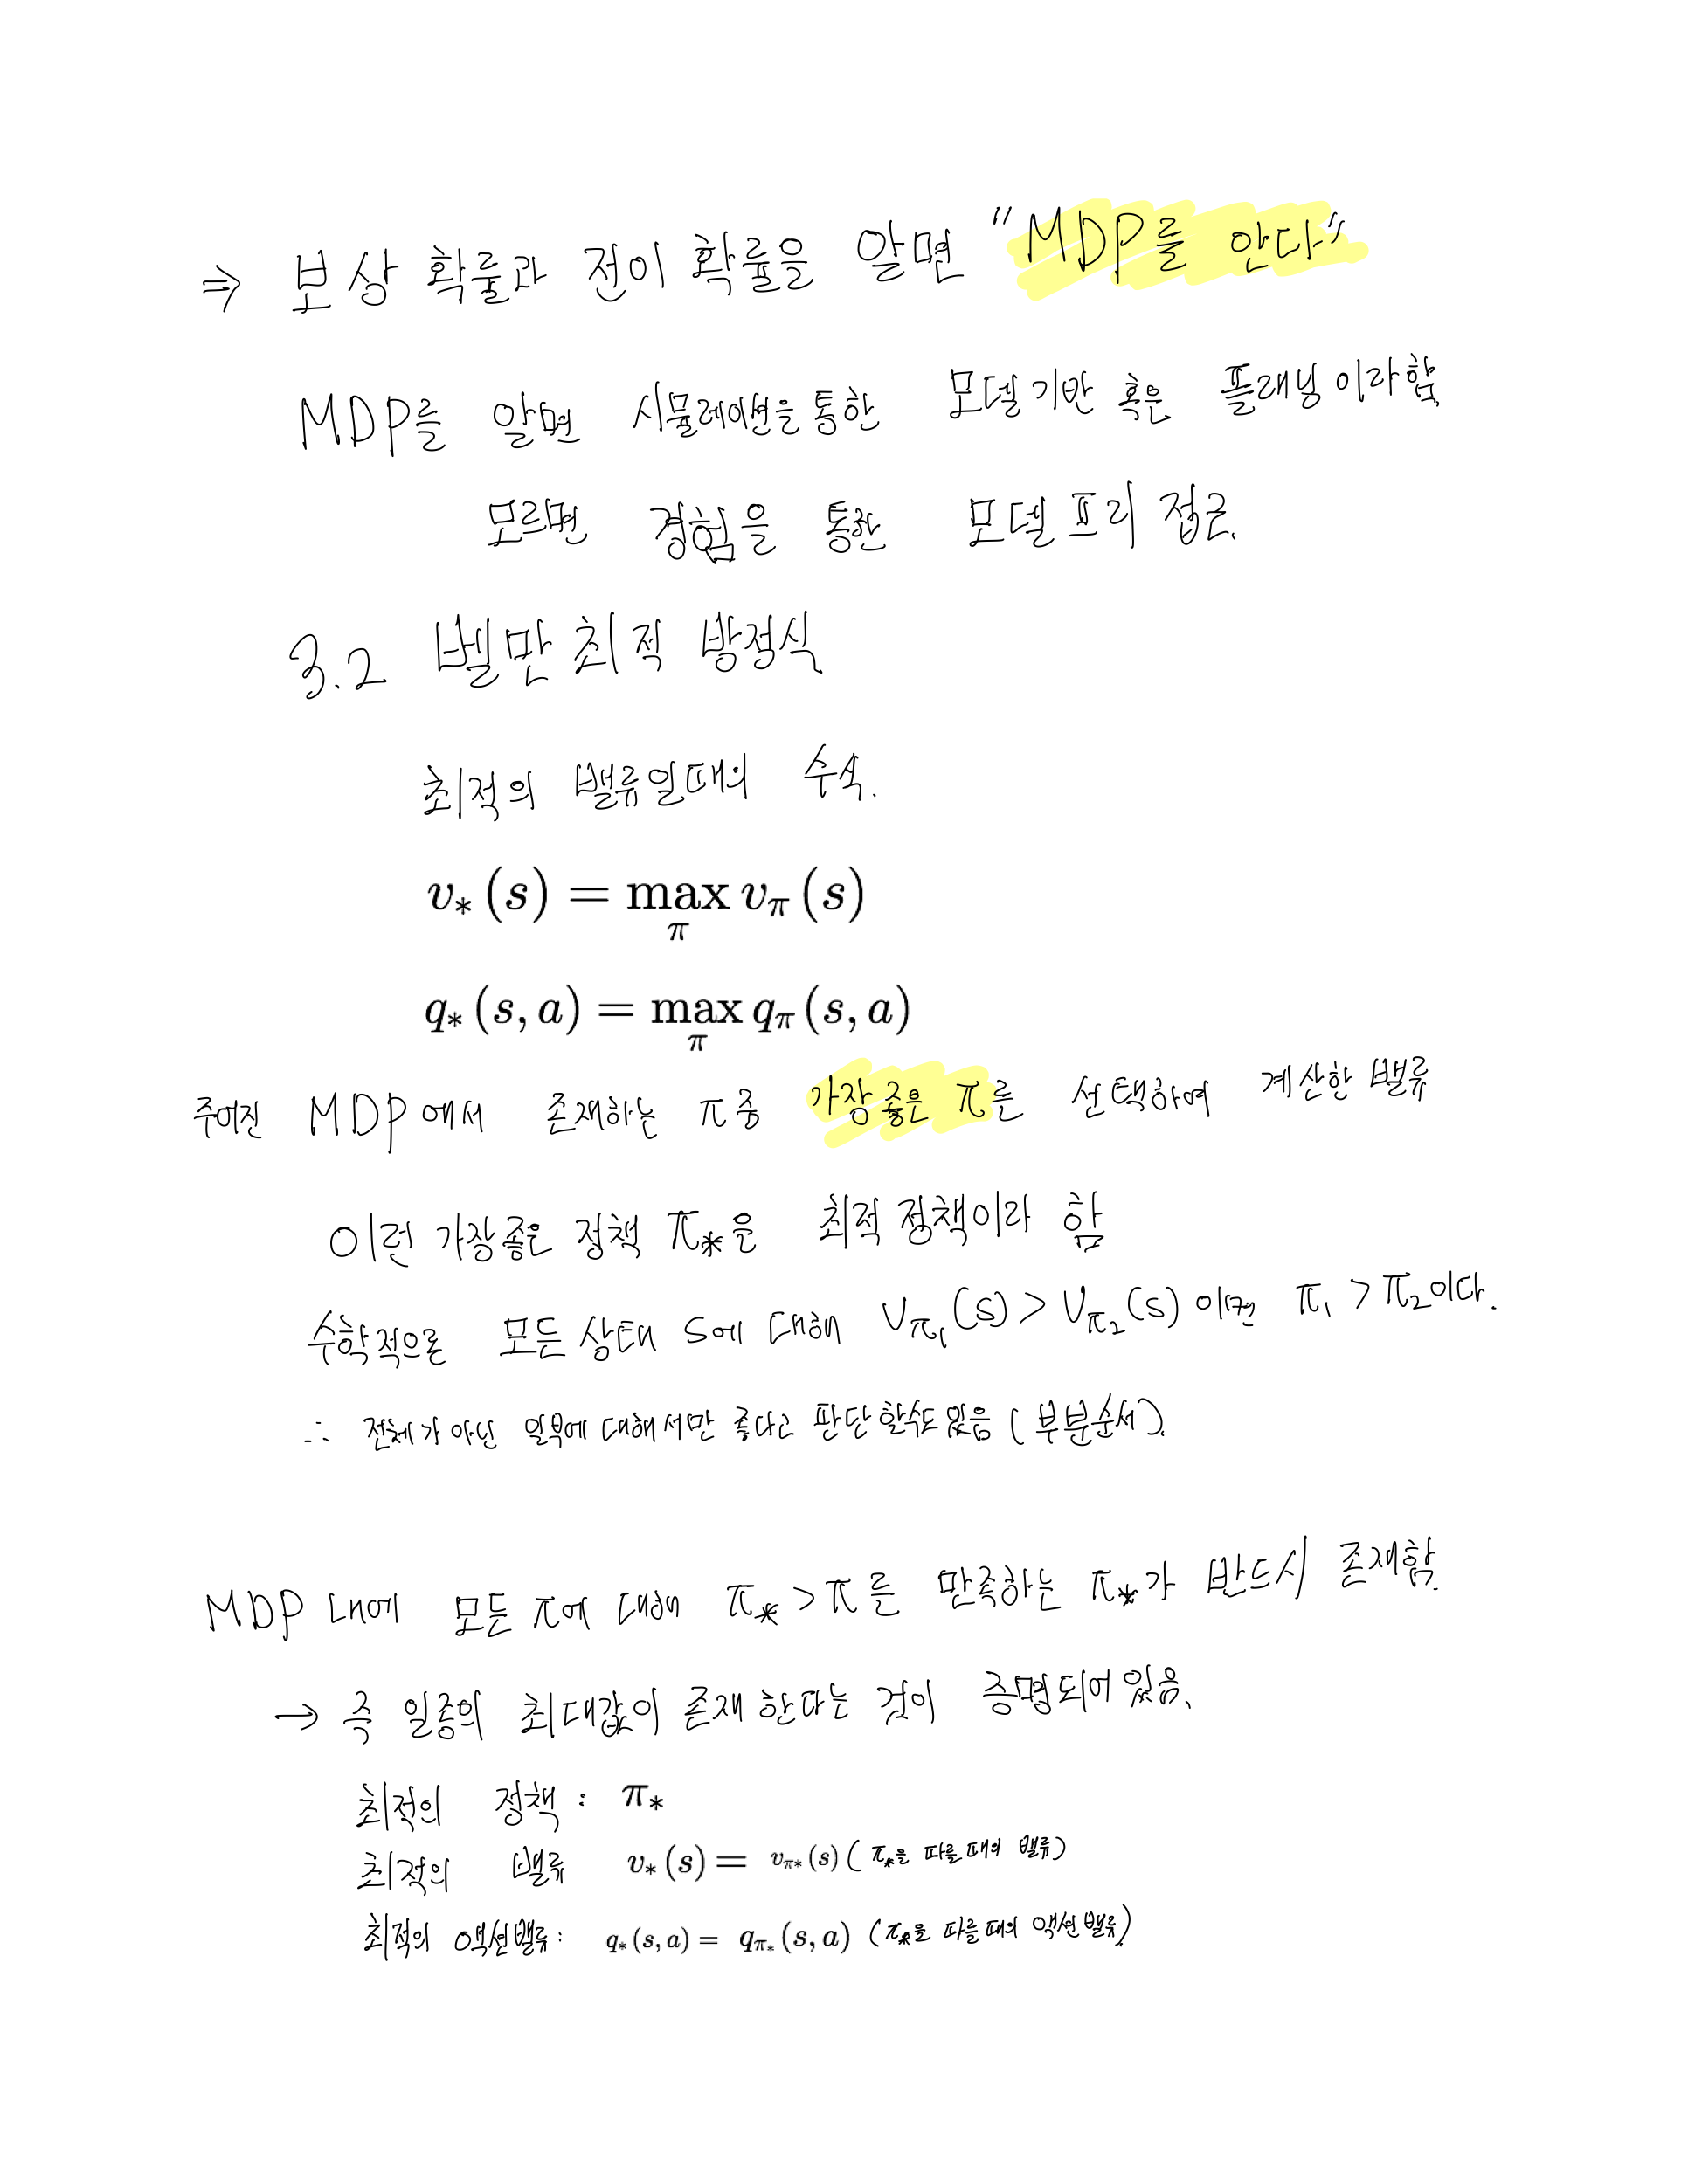 ⇒ 보상 확률과 전이 확률을 알면 "MDP를 안다"
MDP를 알면 시뮬레이션을 통한 모델 기반 혹은 플래닝 이라함
모르면 경험을 통한 모델 프리 접근.
3.2 벨만 최적 방정식
최적의 밸류일때의 수식.
v_*(s) = max_π v_π(s)
q_*(s,a) = max_π q_π(s,a)
주어진 MDP에서 존재하는 π중 가장 좋은 π를 선택하여 계산한 밸류
이런 가장좋은 정책 π_*을 최적 정책이라 함
수학적으론 모든 상태 s에 대해 V_π₁(s) > V_π₂(s) 이면 π₁ > π₂이다.
∴ 전체가 아닌 일부에 대해서만 좋다고 판단 할수도 있음 (부분순서).
MDP 내에 모든 π에 대해 π_* > π를 만족하는 π_*가 반드시 존재함.
→ 즉 일종의 최대값이 존재 한다는 것이 증명되어 있음.
최적의 정책 : π_*
최적의 밸류 v_*(s) = v_π*(s) (π_*을 따를 때의 밸류)
최적의 액션밸류 : q_*(s,a) = q_π*(s,a) (π_*을 따를 때의 액션 밸류)